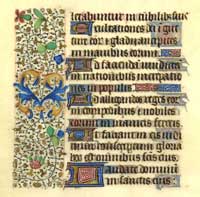 letabuntur in cubilibus suis
Exultationes dei i gut
ture eor et gladii ancipites
in manibus eorum
Ad faciendā vindictā
in nationibus increpatio
nes in populis
Ad alligandos reges eoȝ
in compedibus et nobiles
eorum in manicis ferreis
Ut faciant in eis iudi
cium conscriptum gloria
hec est omnibus sctis eius
Laudate dominū
in sanctis eius